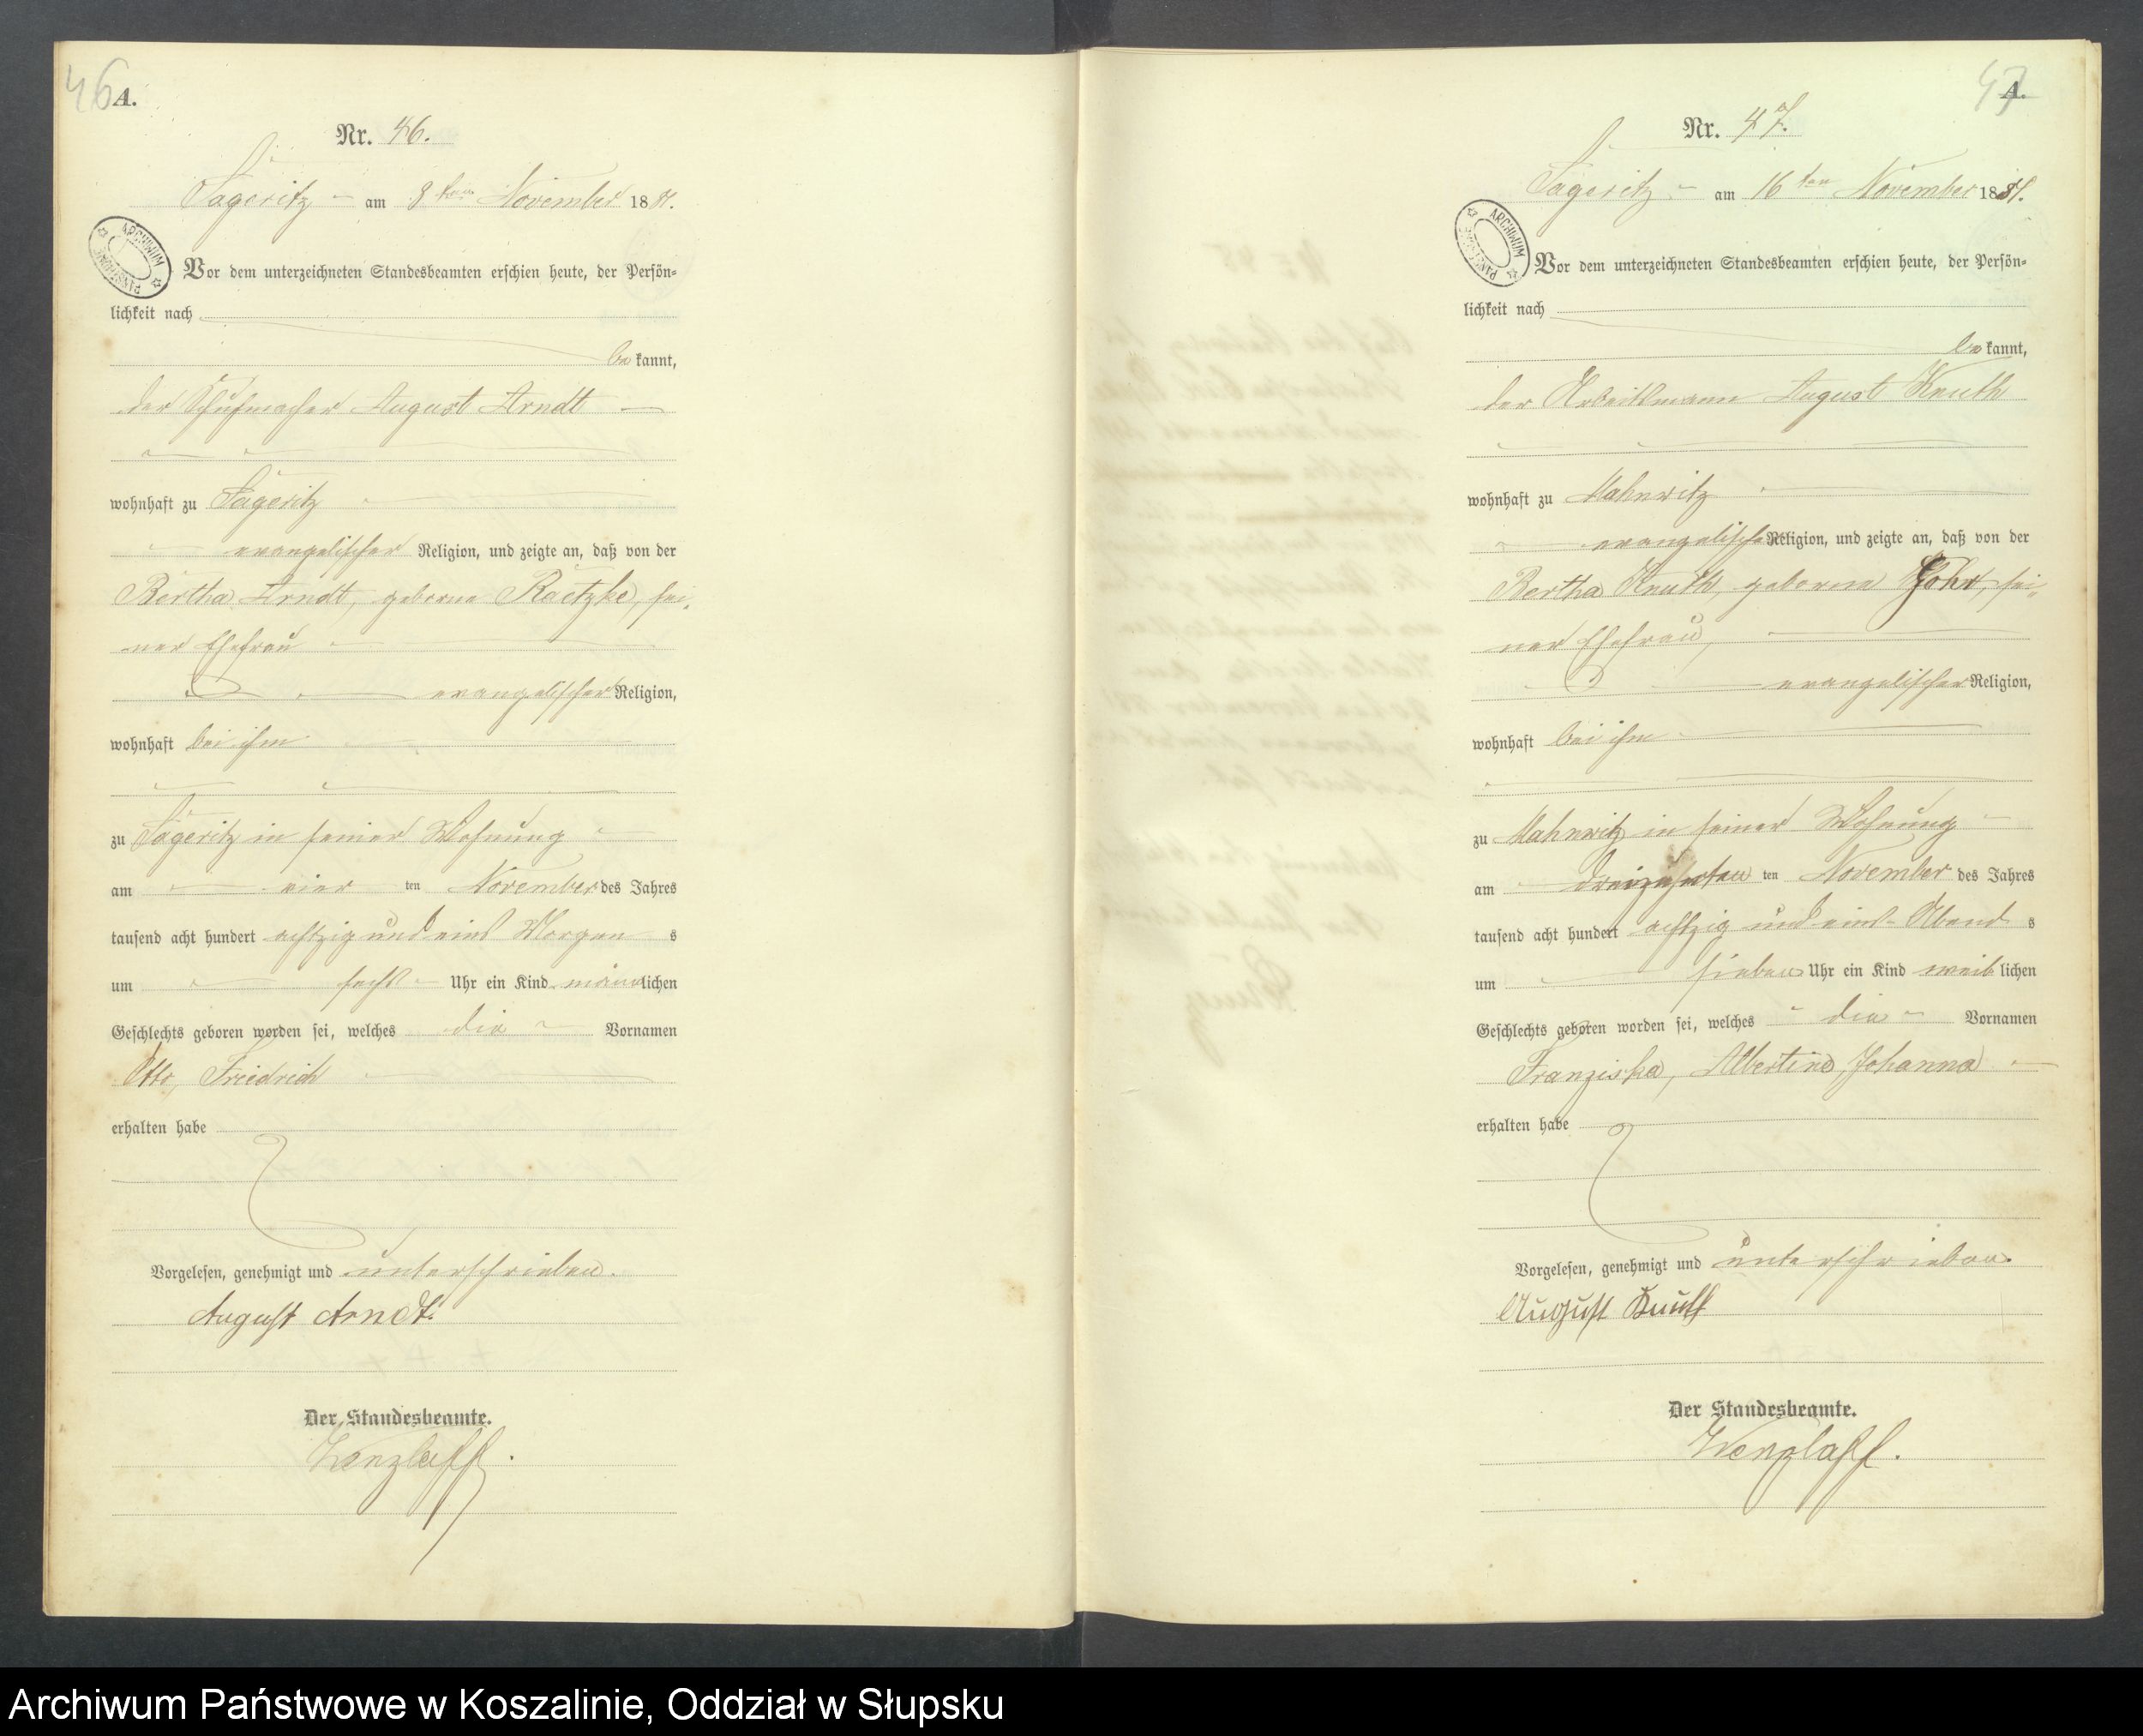 46
A.
Nr. 46.
Sageritz am 8ten November 1881.
ARCHIWUM
PAŃSTWOWE
Vor dem unterzeichneten Standesbeamten erschien heute, der Persön=
lichkeit nach
be kannt,
der Schuhmacher August Arndt
wohnhaft zu Sageritz
evangelischer Religion, und zeigte an, daß von der
Bertha Arndt, geborne Raetzke, sei-
ner Ehefrau
evangelischer Religion,
wohnhaft bei ihm
zu Sageritz in seiner Wohnung
am vier ten November des Jahres
tausend acht hundert achtzig und eins Morgen s
um sechs Uhr ein Kind männlichen
Geschlechts geboren worden sei, welches die Vornamen
Otto, Friedrich
erhalten habe
Vorgelesen, genehmigt und unterschrieben.
August Arndt.
Der Standesbeamte.
Wenzlaff.
47
A.
Nr. 47.
Sageritz am 16ten November 1881.
ARCHIWUM
PAŃSTWOWE
Vor dem unterzeichneten Standesbeamten erschien heute, der Persön=
lichkeit nach
be kannt,
der Arbeitsmann August Knuth
wohnhaft zu Mahnwitz
evangelischer Religion, und zeigte an, daß von der
Bertha Knuth, geborne sei-
ner Ehefrau,
evangelischer Religion,
wohnhaft bei ihm
zu Mahnwitz in seiner Wohnung
am dreizehnten ten November des Jahres
tausend acht hundert achtzig und eins Abend s
um sieben Uhr ein Kind weib lichen
Geschlechts geboren worden sei, welches die Vornamen
Franziska, Albertine, Johanna
erhalten habe
Vorgelesen, genehmigt und unterschrieben.
August Knuth
Der Standesbeamte.
Wenzlaff.
Archiwum Państwowe w Koszalinie, Oddział w Słupsku